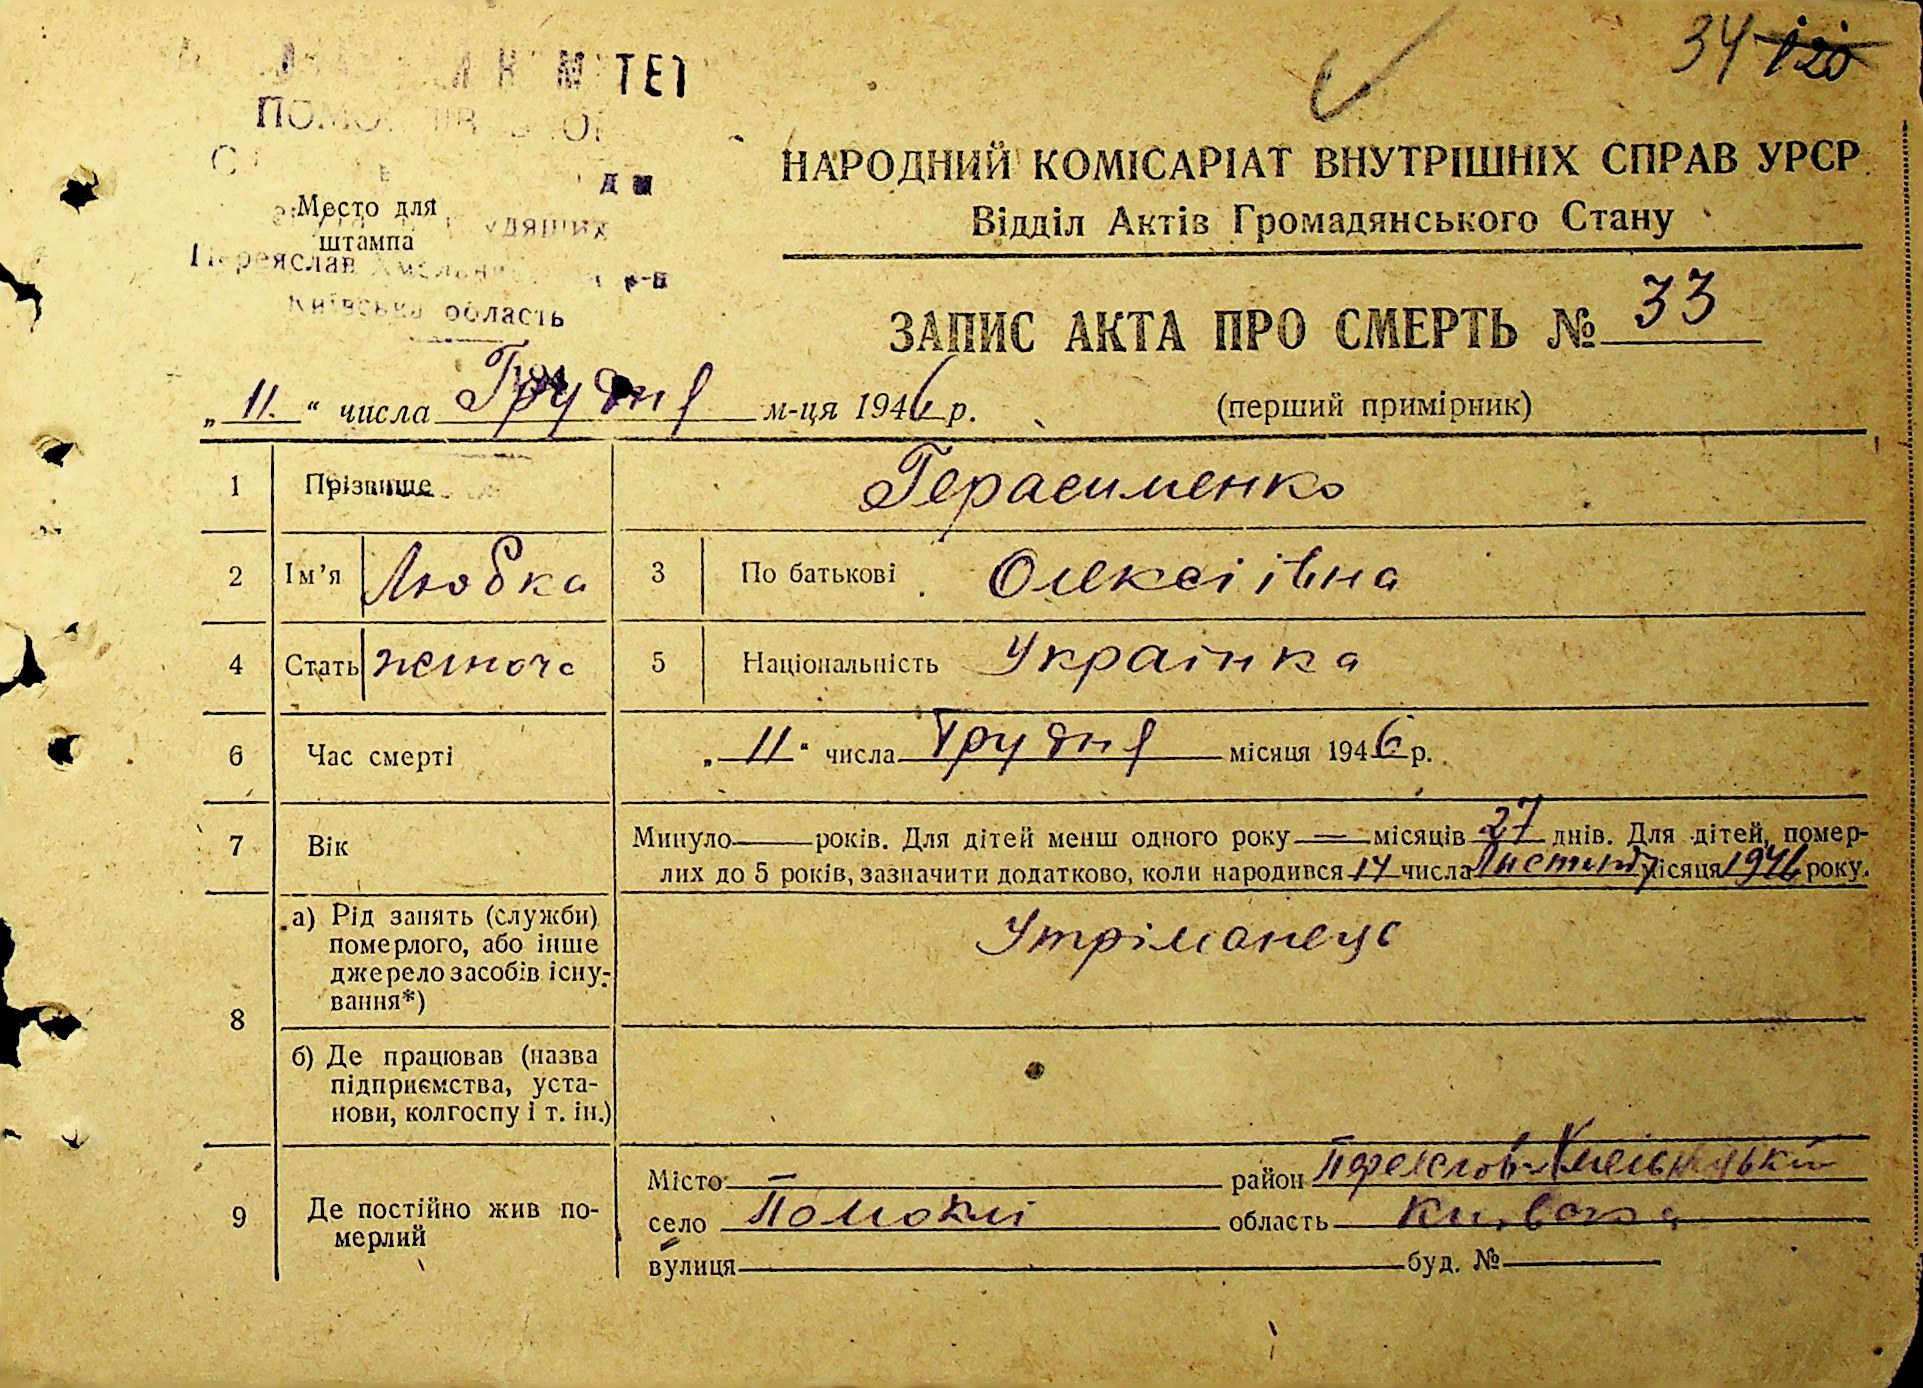 34 120
ТЕТ
Место для
штампа
Переяслав Хмельни р-н
Київська область
НАРОДНИЙ КОМІСАРІАТ ВНУТРІШНІХ СПРАВ УРСР
Відділ Актів Громадянського Стану
ЗАПИС АКТА ПРО СМЕРТЬ № 33
„ 11. “ числа Грудня м-ця 1946 р. (перший примірник)
1 Прізвище Герасименко
2 Ім’я Любка 3 По батькові Олексіівна
4 Стать жіноча 5 Національність Украінка
6 Час смерті „ 11 “ числа Грудня місяця 1946 р.
7 Вік Минуло — років. Для дітей менш одного року — місяців 27 днів. Для дітей, помер-
лих до 5 років, зазначити додатково, коли народився 14 числа місяця 1946 року.
8 а) Рід занять (служби)
померлого, або інше
джерело засобів існу-
вання*)
Утріманець
б) Де працював (назва
підприємства, уста-
нови, колгоспу і т. ін.)
9 Де постійно жив по-
мерлий
Місто — район Переяслав-Хмельницький
село Помоклі область Київська
вулиця буд. №